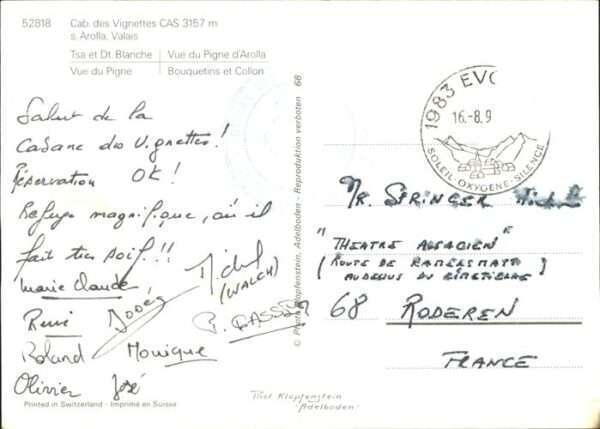 52818 Cab. des Vignettes CAS 3157 m
s. Arolla, Valais
Tsa et Dt. Blanche Vue du Pigne d'Arolla
Vue du Pigne Bouquetins et Collon
Salut de la
Cabane des Vignettes!
Réservation OK!
Refuge magnifique, où il
fait très soif!!
Marie Claude
Michel
(WALCH)
René
Roland Monique
Olivier José
Printed in Switzerland - Imprimé en Suisse
© Photo Klopfenstein, Adelboden - Reproduktion verboten 68
1983 EVO
16.-8.9
SOLEIL-OXYGENE-SILENCE
MR. SPRINGER
"THEATRE ALSACIEN"
(ROUTE DE
AUDESUS DU
68 RODEREN
FRANCE
Phot Klopfenstein
Adelboden